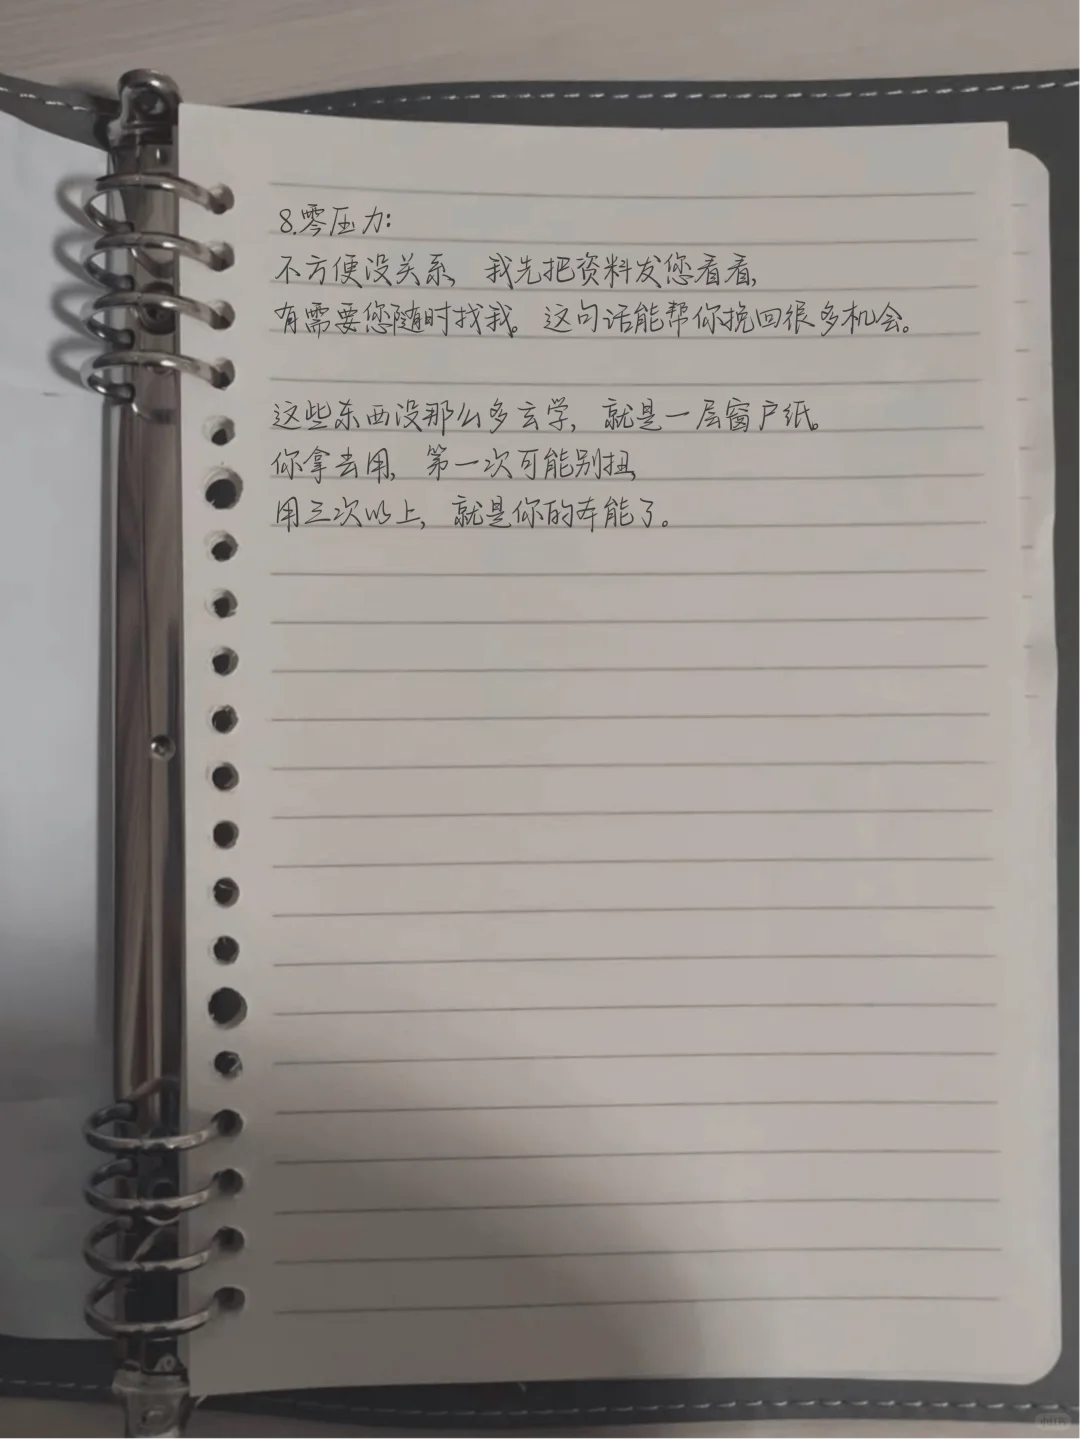 8.零压力:
不方便没关系, 我先把资料发您看看,
有需要您随时找我。这句话能帮你挽回很多机会。
这些东西没那么多玄学, 就是一层窗户纸。
你拿去用, 第一次可能别扭,
用三次以上, 就是你的本能了。